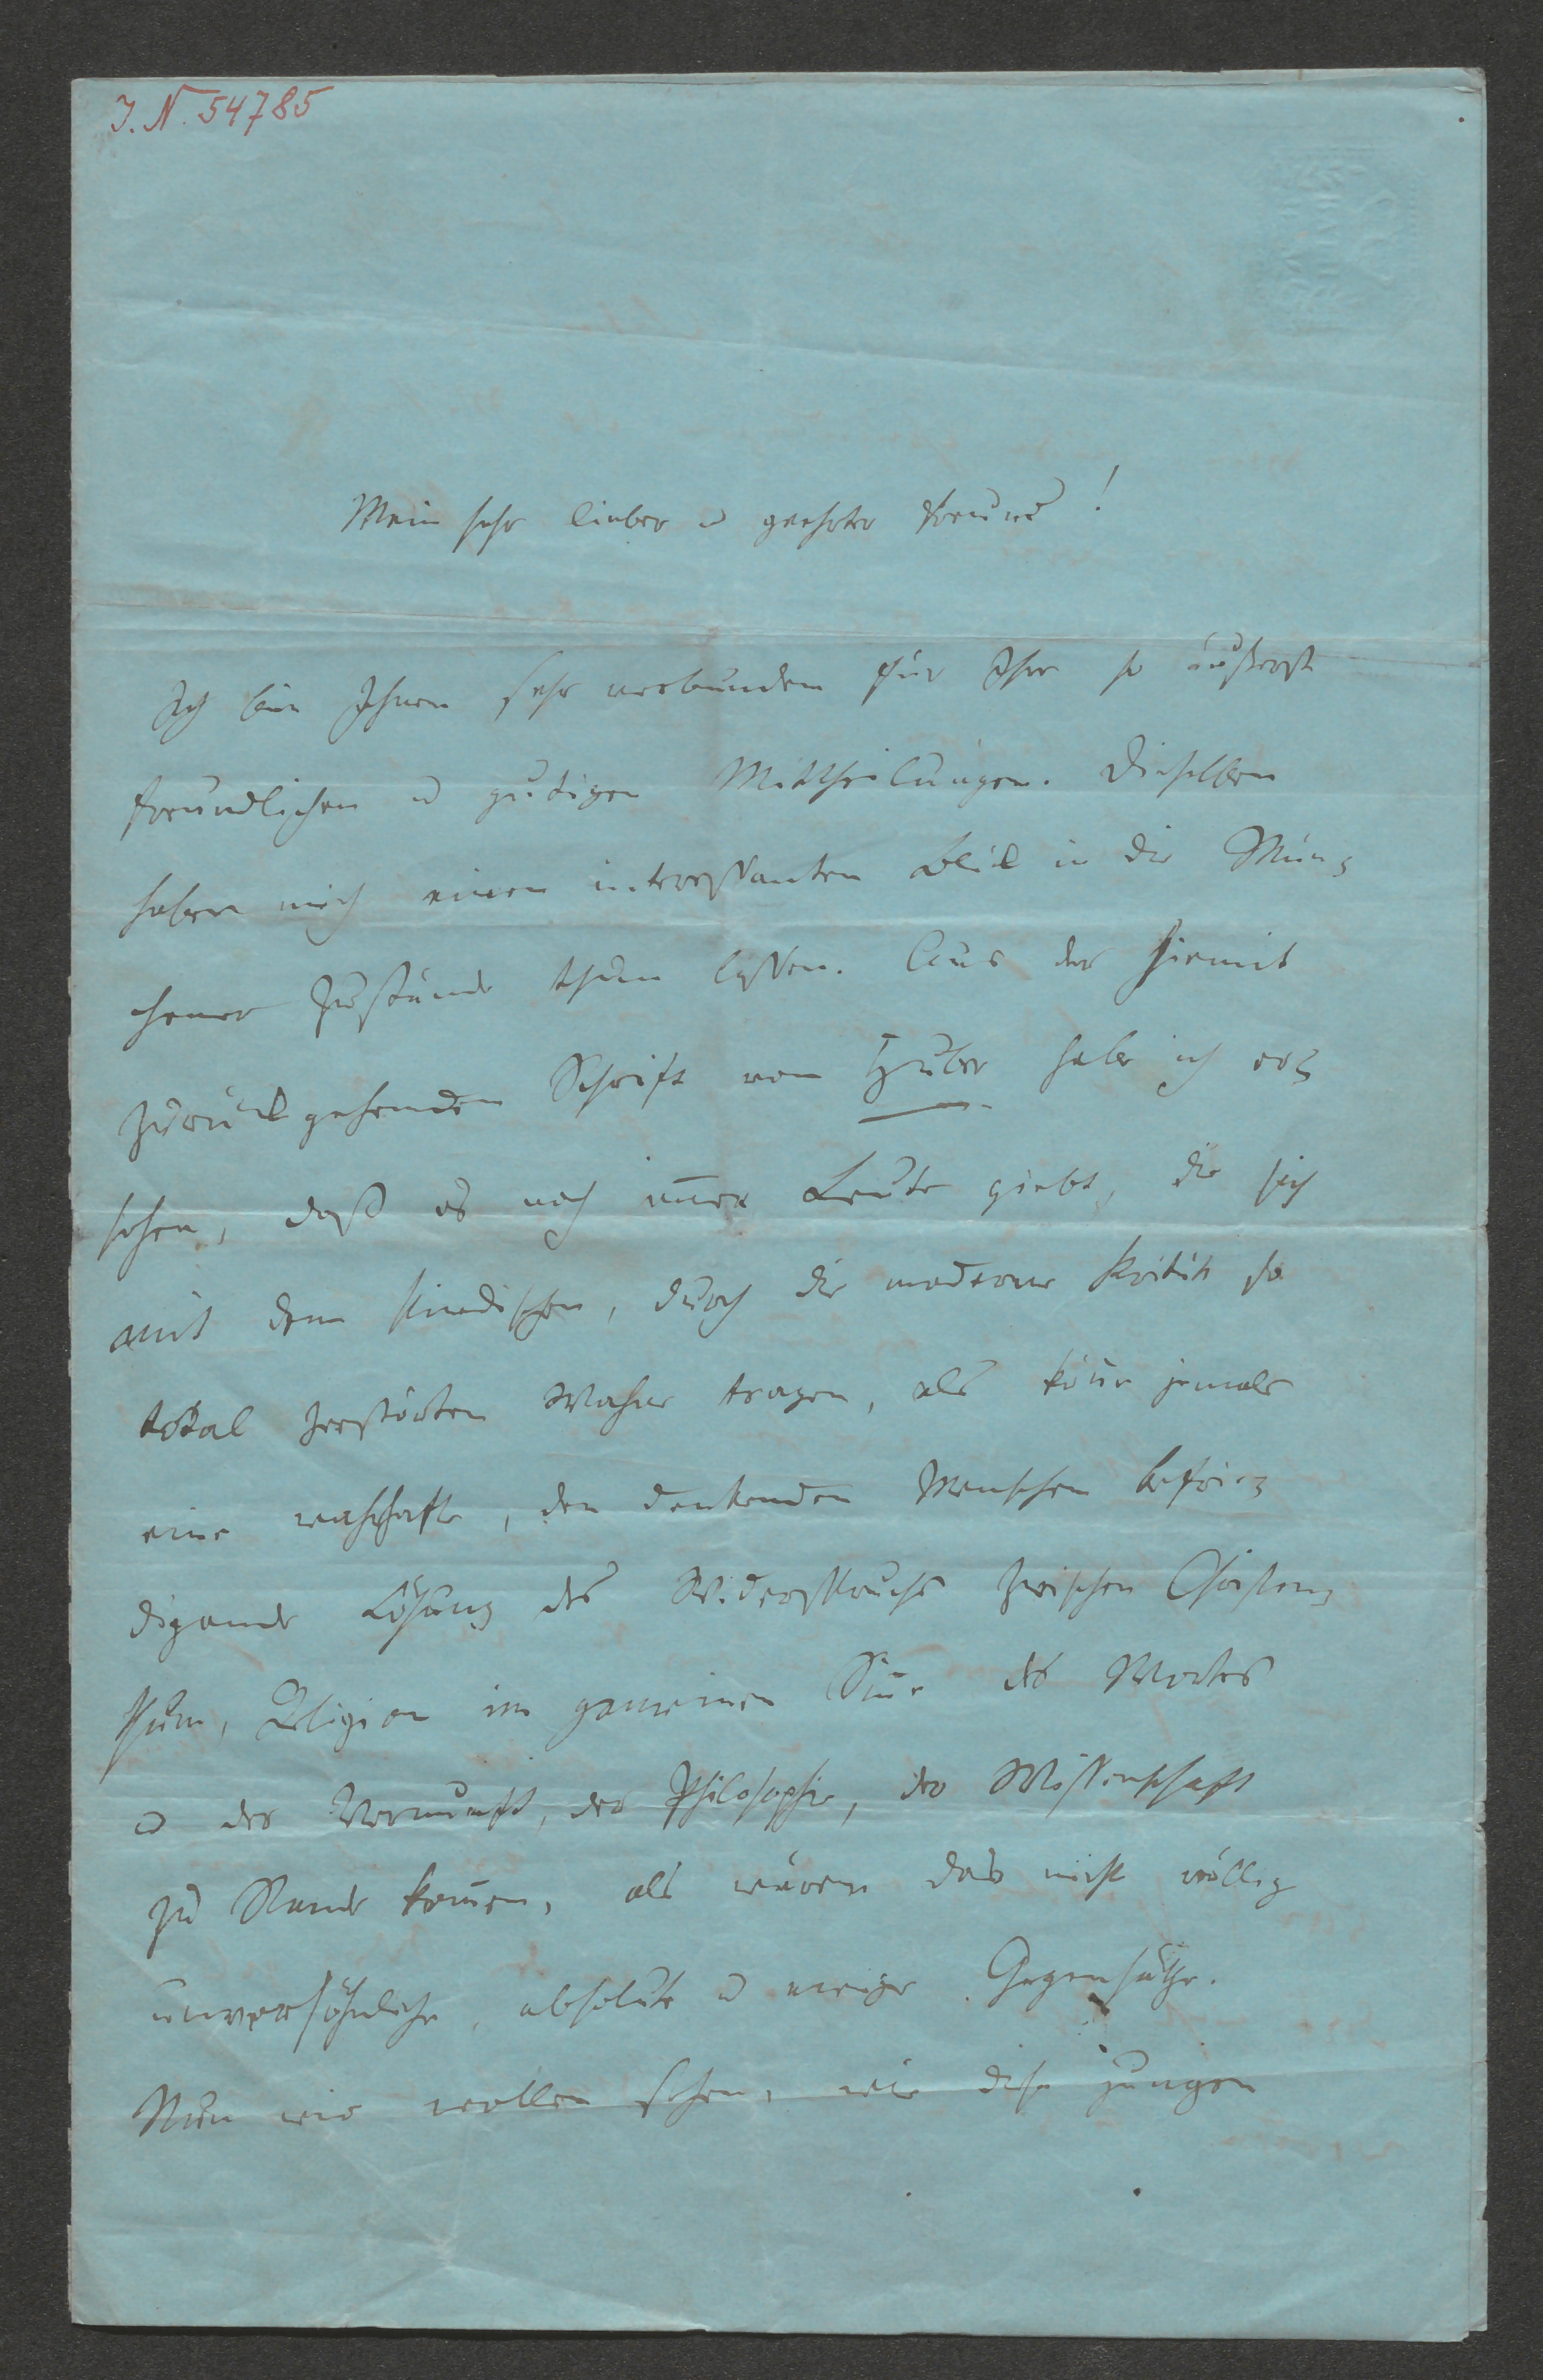 J. N. 54785
Mein sehr lieber u geehrter Freund!
Ich bin Ihnen sehr verbunden für Ihre so äußerst
freundlichen u gütigen Mittheilungen. Dieselben
haben mich einen interessanten Blick in die Mün-
chener Zustände thun lassen. Aus der hiemit
zurückgehenden Schrift von Huber habe ich er-
sehen, daß es noch im̄er Leute giebt, die sich
mit dem kindischen, durch die moderne Kritik so
total zerstörten Wahne tragen, als köñe jemals
eine wahrhafte, den denkenden Menschen befrie-
digende Lösung des Widerspruchs zwischen Christen-
thum, Religion im gemeinen Siñe des Wortes
u der Vernunft, der Philosophie, der Wissenschaft
zu Stande kom̄en, als wären das nicht völlig
unversöhnliche, absolute u ewige Gegensätze.
Nun wir wollen sehen, wie diese jungen